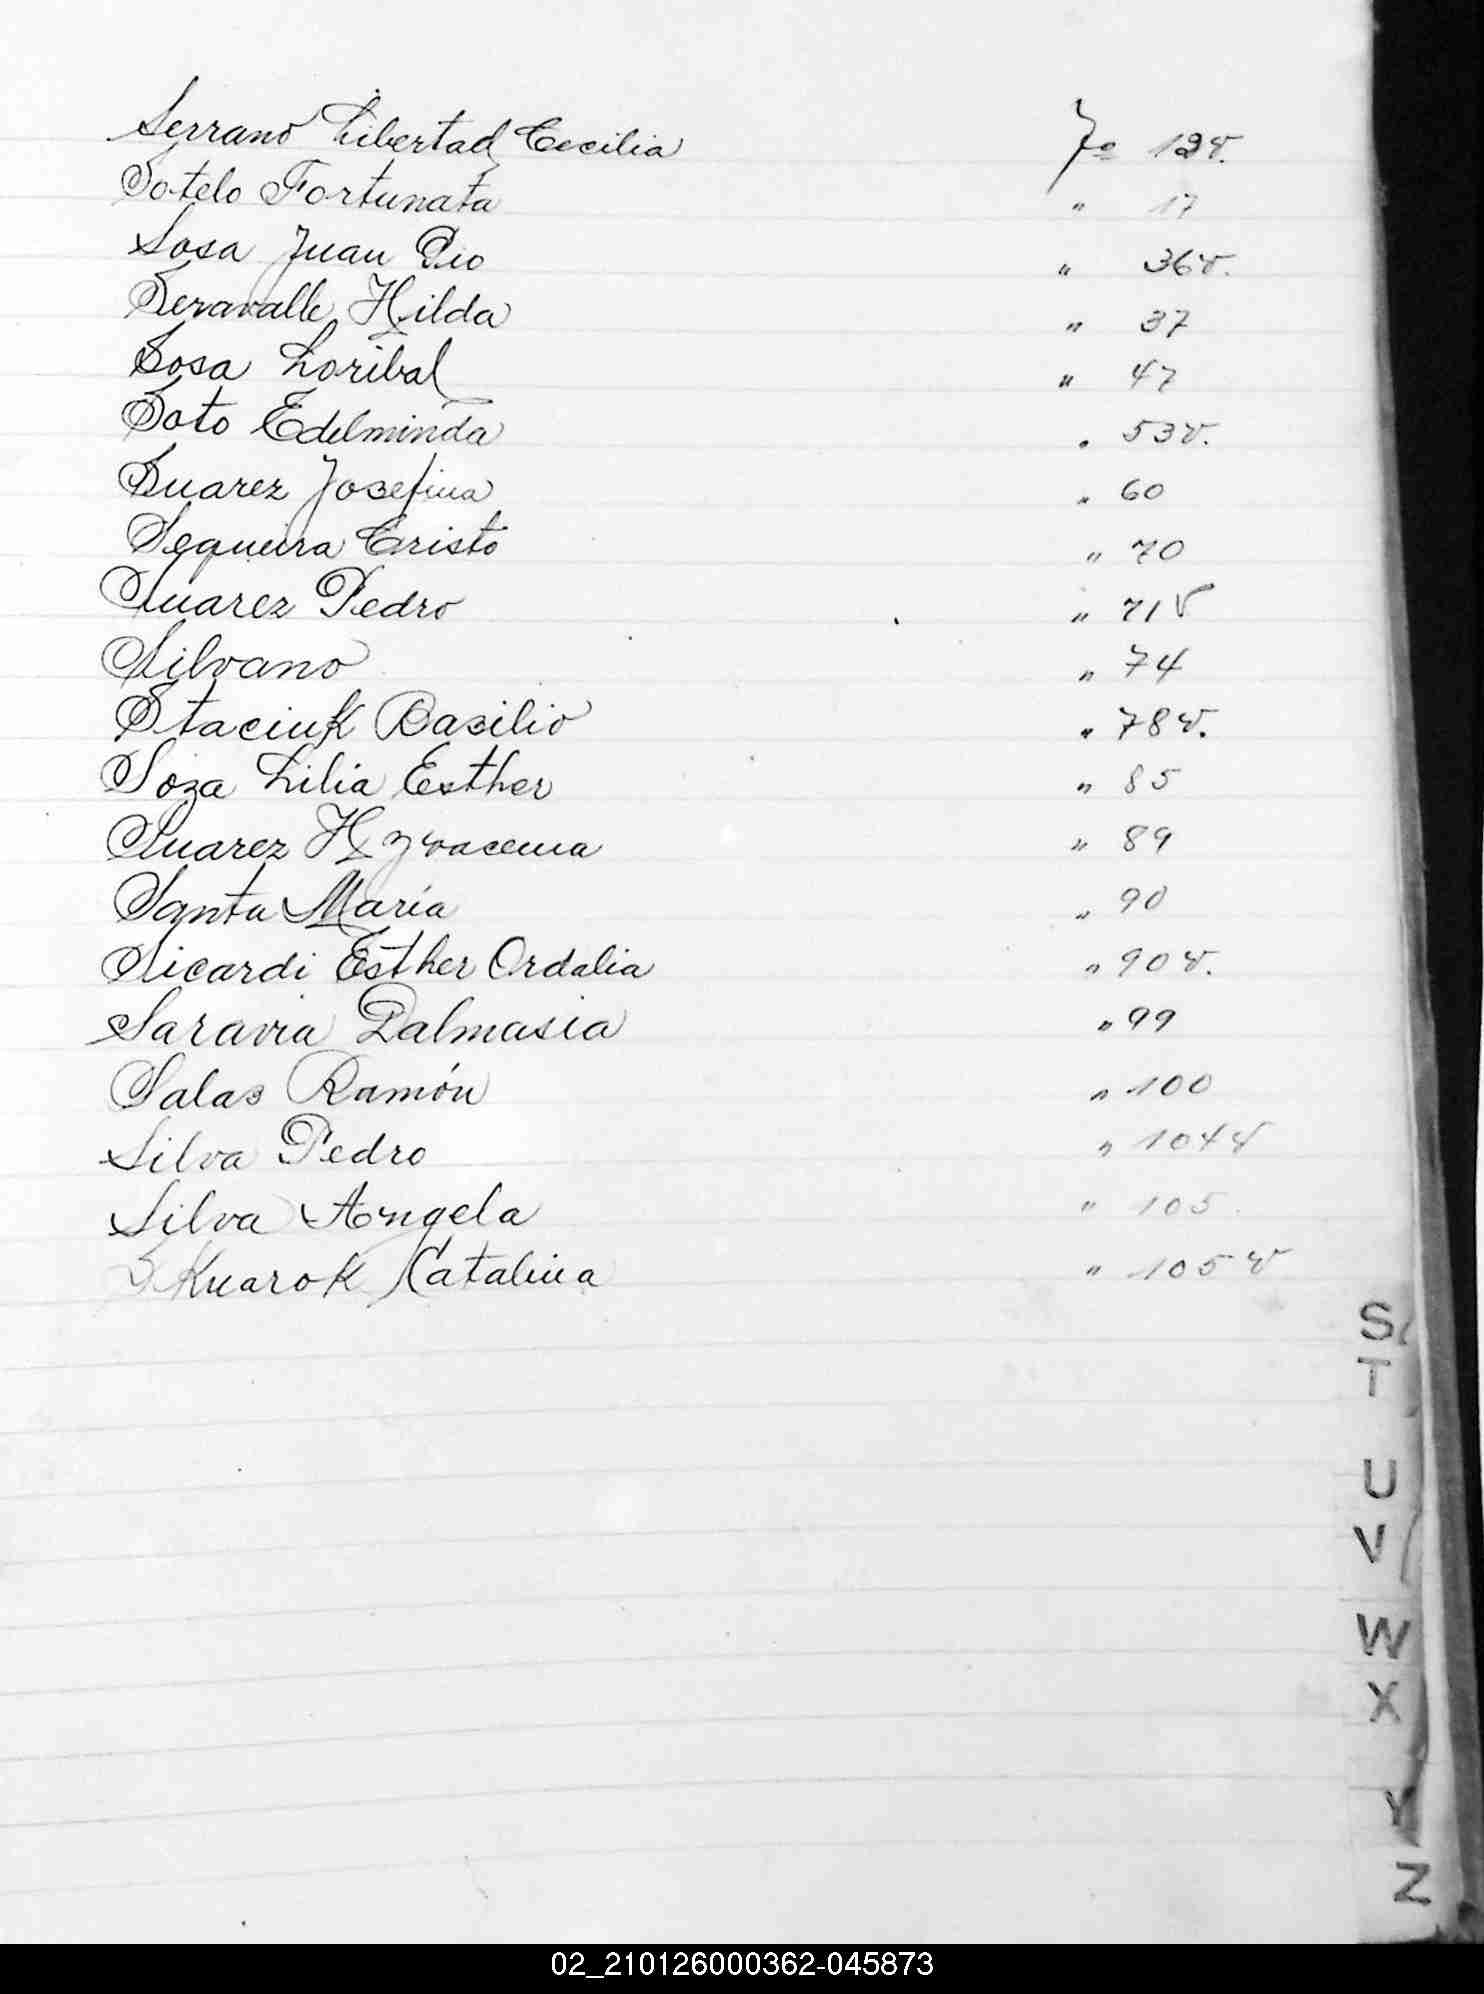 Serrano Libertad Cecilia Fº 12v.
Sotelo Fortunata " 17
Sosa Juan Pio " 36v.
Seravalle Hilda " 37
Sosa Loribal " 47
Soto Edelminda " 53v.
Suarez Josefina " 60
Sequeira Cristo " 70
Suarez Pedro " 71v
Silvano " 74
Staciuk Basilio " 78v.
Soza Lilia Esther " 85
Suarez H " 89
Santa María " 90
Sicardi Esther Ordalia " 90v.
Saravia Dalmasia " 99
Salas Ramón " 100
Silva Pedro " 104v
Silva Angela " 105
SKuarok Catalina " 105v
S
T
U
V
W
X
Y
Z
02_210126000362-045873